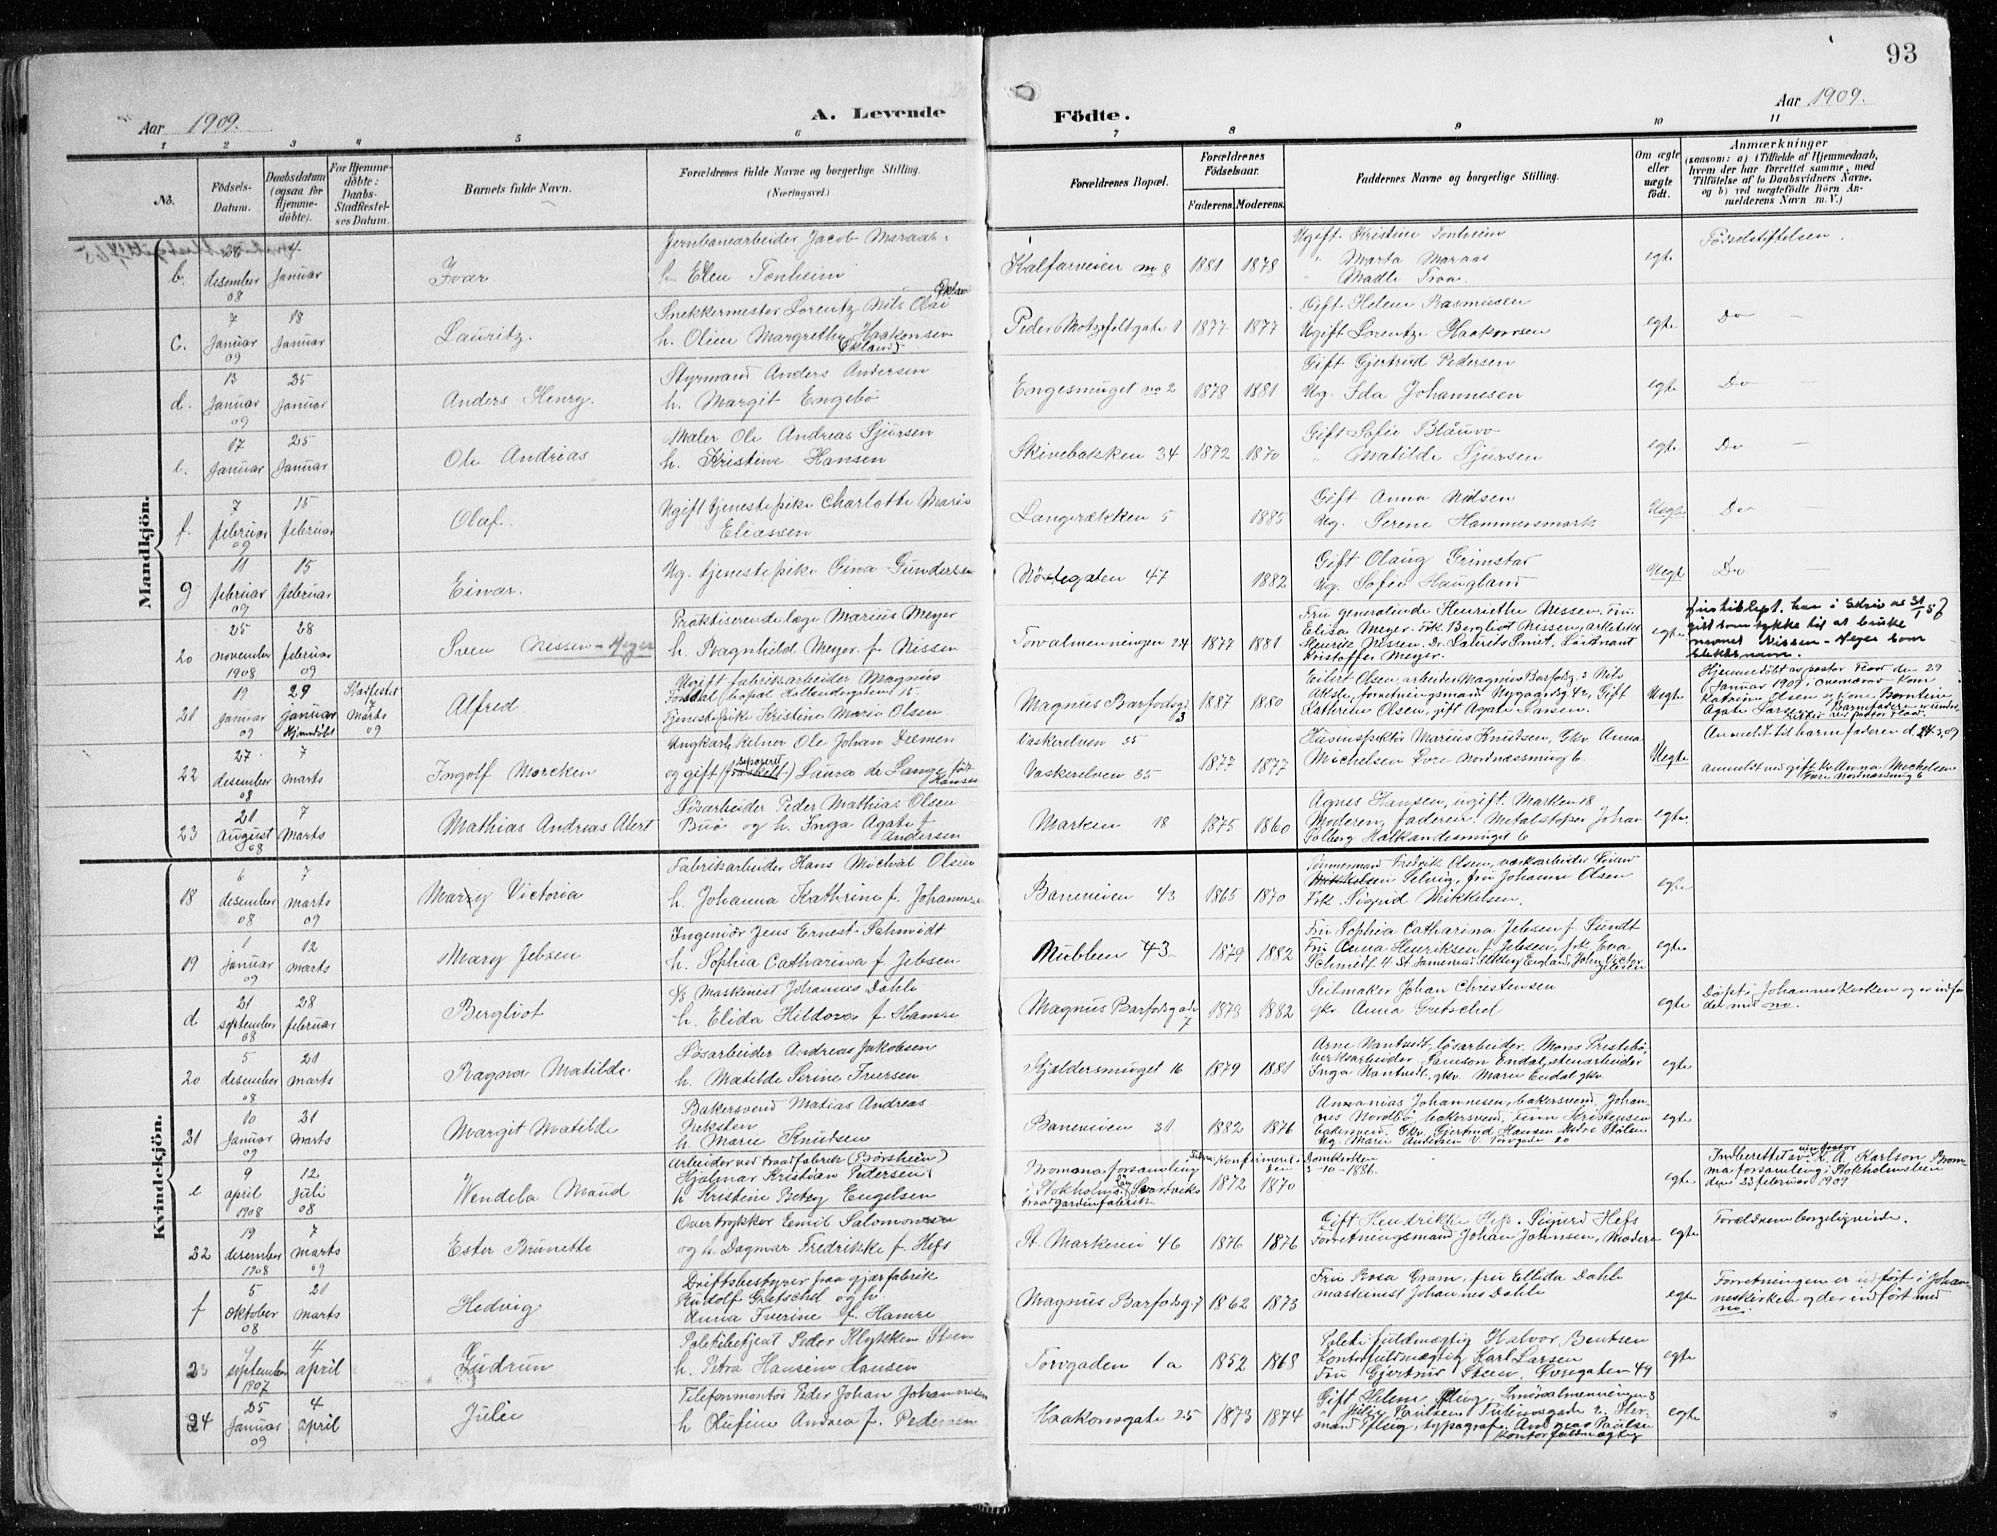 93
Aar 1909.
A. Levende
Födte.
Aar 1909.
1 2 3 4 5 6 7 8 9 10 11
No.
Födsels-
Datum.
Daabsdatum
(ogsaa for
Hjemme-
döbte).
For Hjemme-
döbte:
Daabs-
Stadfæstel-
ses Datum.
Barnets fulde Navn.
Forældrenes fulde Navne og borgerlige Stilling.
(Næringsvei.)
Forældrenes Bopæl.
Forældrenes
Födselsaar.
Faderens. Moderens.
Faddernes Navne og borgerlige Stilling.
Om ægte
eller
uægte
födt.
Anmærkninger
(saasom: a) i Tilfælde af Hjemmedaab,
hvem der har forrettet samme, med
Tilföielse af to Daabsvidners Navne.
og b) ved uægtefödte Börn An-
melderens Navn m. V.)
Mandkjön.
b.
28
desember
08
4
Januar
Ivar
Jernbanearbeider Jacob Maraas
h. Elen Tonheim
Kalfarveien no 8
1881
1878
Ugift Kristine Tonheim
" Marta Maraas
" Madli Traa.
egte
Fødselstiftelsen.
c.
7
Januar
09
18
Januar
Lauritz.
Snekkermester Lorentz Nils Olai Ekland
h. Oline Margrethe Haakonsen
(Ekland)
Peder Motzfeltgate 1
1877
1877
Gift Helene Rasmusen
Ugift Lorentze Haakonsen
egte
Do —
d.
13
Januar
09
25
Januar
Anders Henry.
Styrmand Anders Andersen
h. Margit Engebø
Engesmuget no 2
1878
1881
Gift Gjertrud Pedersen
Ug. Ida Johannesen
egte
Do —
e.
17
Januar
25
Januar
Ole Andreas
Maler Ole Andreas Sjursen
h. Kristine Hansen
Skivebakken 34
1872
1870
Gift Sofie Blauvo
" Matilde Sjursen
egte
Do —
f.
7
februar
09
15
februar
Olaf.
Ugift tjenestepike Charlotte Marie
Eliassen
Langerækken 5
1885
Gift Anna Nilsen
Ug. Serene Hammersmark
Uegte
Do
g
11
februar
09
15
februar
Einar.
Ug. tjenestepike Gina Gundersen
Nøstegaten 47
1882
Gift Olaug Grimstad
Ug. Sofie Haugland
Uegte
Do —
20
25
november
1908
28
februar
09
Sven Nissen-Meyer
Praktiserende læge Marius Meyer
h. Ragnhild Meyer f. Nissen
Torvalmenningen 24
1877
1881
Fru generalinde Henriette Nissen, Fru
Elisa Meyer. Frk. Bergliot Nissen, arkitekt
Henrik Nissen. Dr. Laurits Smit, Løitnant
Kristoffer Meyer.
egte
Justisdept. har i Skriv av
gitt samtykke til at bruke
navnet Nissen-Meyer som
slektsnavn.
21
19
januar
09
29
januar
Hjemdøbt
Stadfestet
7
Marts
09
Alfred
Ugift fabrikarbeider Magnus
Forsdal (bopæl Hollendergaten 15
Tjenestepike Kristine Marie Olsen
Magnus Barfodsg. 3
1887
1880
Eilert Olsen, arbeider Magnus Barfodsg. 3 Nils
forretningsmand Nygaardsg 42, Gift
Kathrine Olsen, gift Agate Larsen.
Uegte
Hjemmedøbt av pastor Flood den 29
Januar 1909, overværas kone
Katrine Olsen og kone
Agate Larsen.
22
27
desember
08
7
marts
Ingolf Morcken
kelner Ole Johan Diemen
og gift (separeret) Laura de Lange født
Hansen
Vaskerelven 35
Vaskerelven 35
1877
1877
Marius Knudsen, Gkv. Anna
Michelsen Tvre Nordnæssmug 6.
Uegte
Anmeldt til barnefaderen d 24-3-09
anmeldt ved gift kv. Anna Mickelsen
Tvre Nordnæssmug 6
23
21
august
08
7
marts
Mathias Andreas Alert
Løsarbeider Peder Mathias Olsen
Buø og h. Inga Agate f.
Andersen
Marken 18
1875
1860
Agnes Hansen, ugift. Marken 18
Moderen, faderen. Metalstøper Johan
Solberg Halkandesmuget 6
egte.
Kvindekjön.
18
6
desember
08
7
marts
09
Mary Victoria
Fabrikarbeider Hans Michal Olsen
h. Johanna Kathrine f. Johannesen
Baneveien 43
1865
1870
Tømmermand Fredrik Olsen, verksarbeider Søren
Selvig, fru Johanne Olsen
Frk. Sigrid Mikkelsen.
egte
19
1
januar
09
12
marts
Mary Jebsen
Ingeniør Jens Ernest Schmidt
h. Sophia Catharina f. Jebsen
Mublen 43
1879
1882
Fru Sophia Catharina Jebsen f. Sundt
Fru Anna Henriksen f. Jebsen, frk. Eva
Schmidt England, John Victor
Jebsen
egte
d
21
september
08
28
februar
Bergliot
Maskinist Johannes Dahle
h. Elida Hildora f. Hamre
Magnus Barfodsgade
7
1878
1882
Seilmaker Johan Christensen
gkv. Anna Gretschel
egte
Døpt i Johanneskirken og er indfø
der med no.
20
5
desember
08
21
marts
Ragna Matilde
Løsarbeider Andreas Jakobsen
h. Matilde Serine Iversen
Skjældersmuget 16
1879
1881
Arne Nantvedt, løsarbeider. Mons Prestebø,
verksarbeider Samson Endal, stenarbeider
Inga Nantvedt, gkv. Marie Endal gkv.
egte
21
10
Januar
09
21
Marts
Margit Matilde
Bakersvend Matias Andreas
Reksten
h. Marie Knutsen
Baneveien 21
1882
1876
Ananias Johannesen, bakersvend, Johan-
nes Nordbø, bakersvend, Finn Kristensen
bakersvend, Gkv. Gjertrud Hansen Nedre Stølen
Ug. Marie Andersen V. Torvgade 20
egte
e
9
april
1908
12
Juli
08
Wendela Maud
Arbeider ved traadfabrik (Børsheim)
Hjalmar Kristian Petersen.
h. Kristine Betzy Engelsen
Bromma forsamling
i Stokholms Län, Svartviks
traadgardenfabrik
1872
1870
konfirmeret Domkirken
den 3-10-1886.
egte
Indberettet av R. A. Karlson Brom-
ma forsamling i Stokholmslän
den 23 februar 1909
22
19
desember
1908
7
marts
09
Ester Brunette
Overtrykker Emil Salomonsen
og h. Dagmar Fredrikke f. Hefs
St. Markevei 46
1876
1876
Gift Hendrikke Hefs. Sigurd Hefs
Forretningsmand Johan Johnsen, Moderen
egte
Forældrene borgelig viede.
f
5
oktober
08
21
marts
Hedvig
Driftsbestyrer paa gjærfabrik
Rudolf Gretschel og h.
Anna Iverine f. Hamre
Magnus Barfodsg. 7
1862
1873
Fru Rosa Gram, fru Ellida Dahle
maskinist Johannes Dahle
egte
Forretningen er utført i Johan-
neskirken og der indført med
no.
23
september
1907
4
april
Gudrun
Politibetjent Peder Klykken Steen
h. Petra Hansine Hansen
Torvgaden 1a
1852
1868
Politifuldmægtig Halvor Bentsen
Kontorfuldmægtig Karl Larsen
Fru Gjertrud Steen, Øvregaten 49
egte
24
25
Januar
09
4
april
Julie
Telefonmontør Peder Johan Johannesen
h. Olufine Andrea f. Pedersen
Haakonsgate 25
1873
1874
Gift Helene Pflug, Smørsalmenningen 3
Julie Paulsen Tulinusgade 2. Her-
mand Pflug, typograf. Andreas Paulsen
kontorfuldmægtig
egte